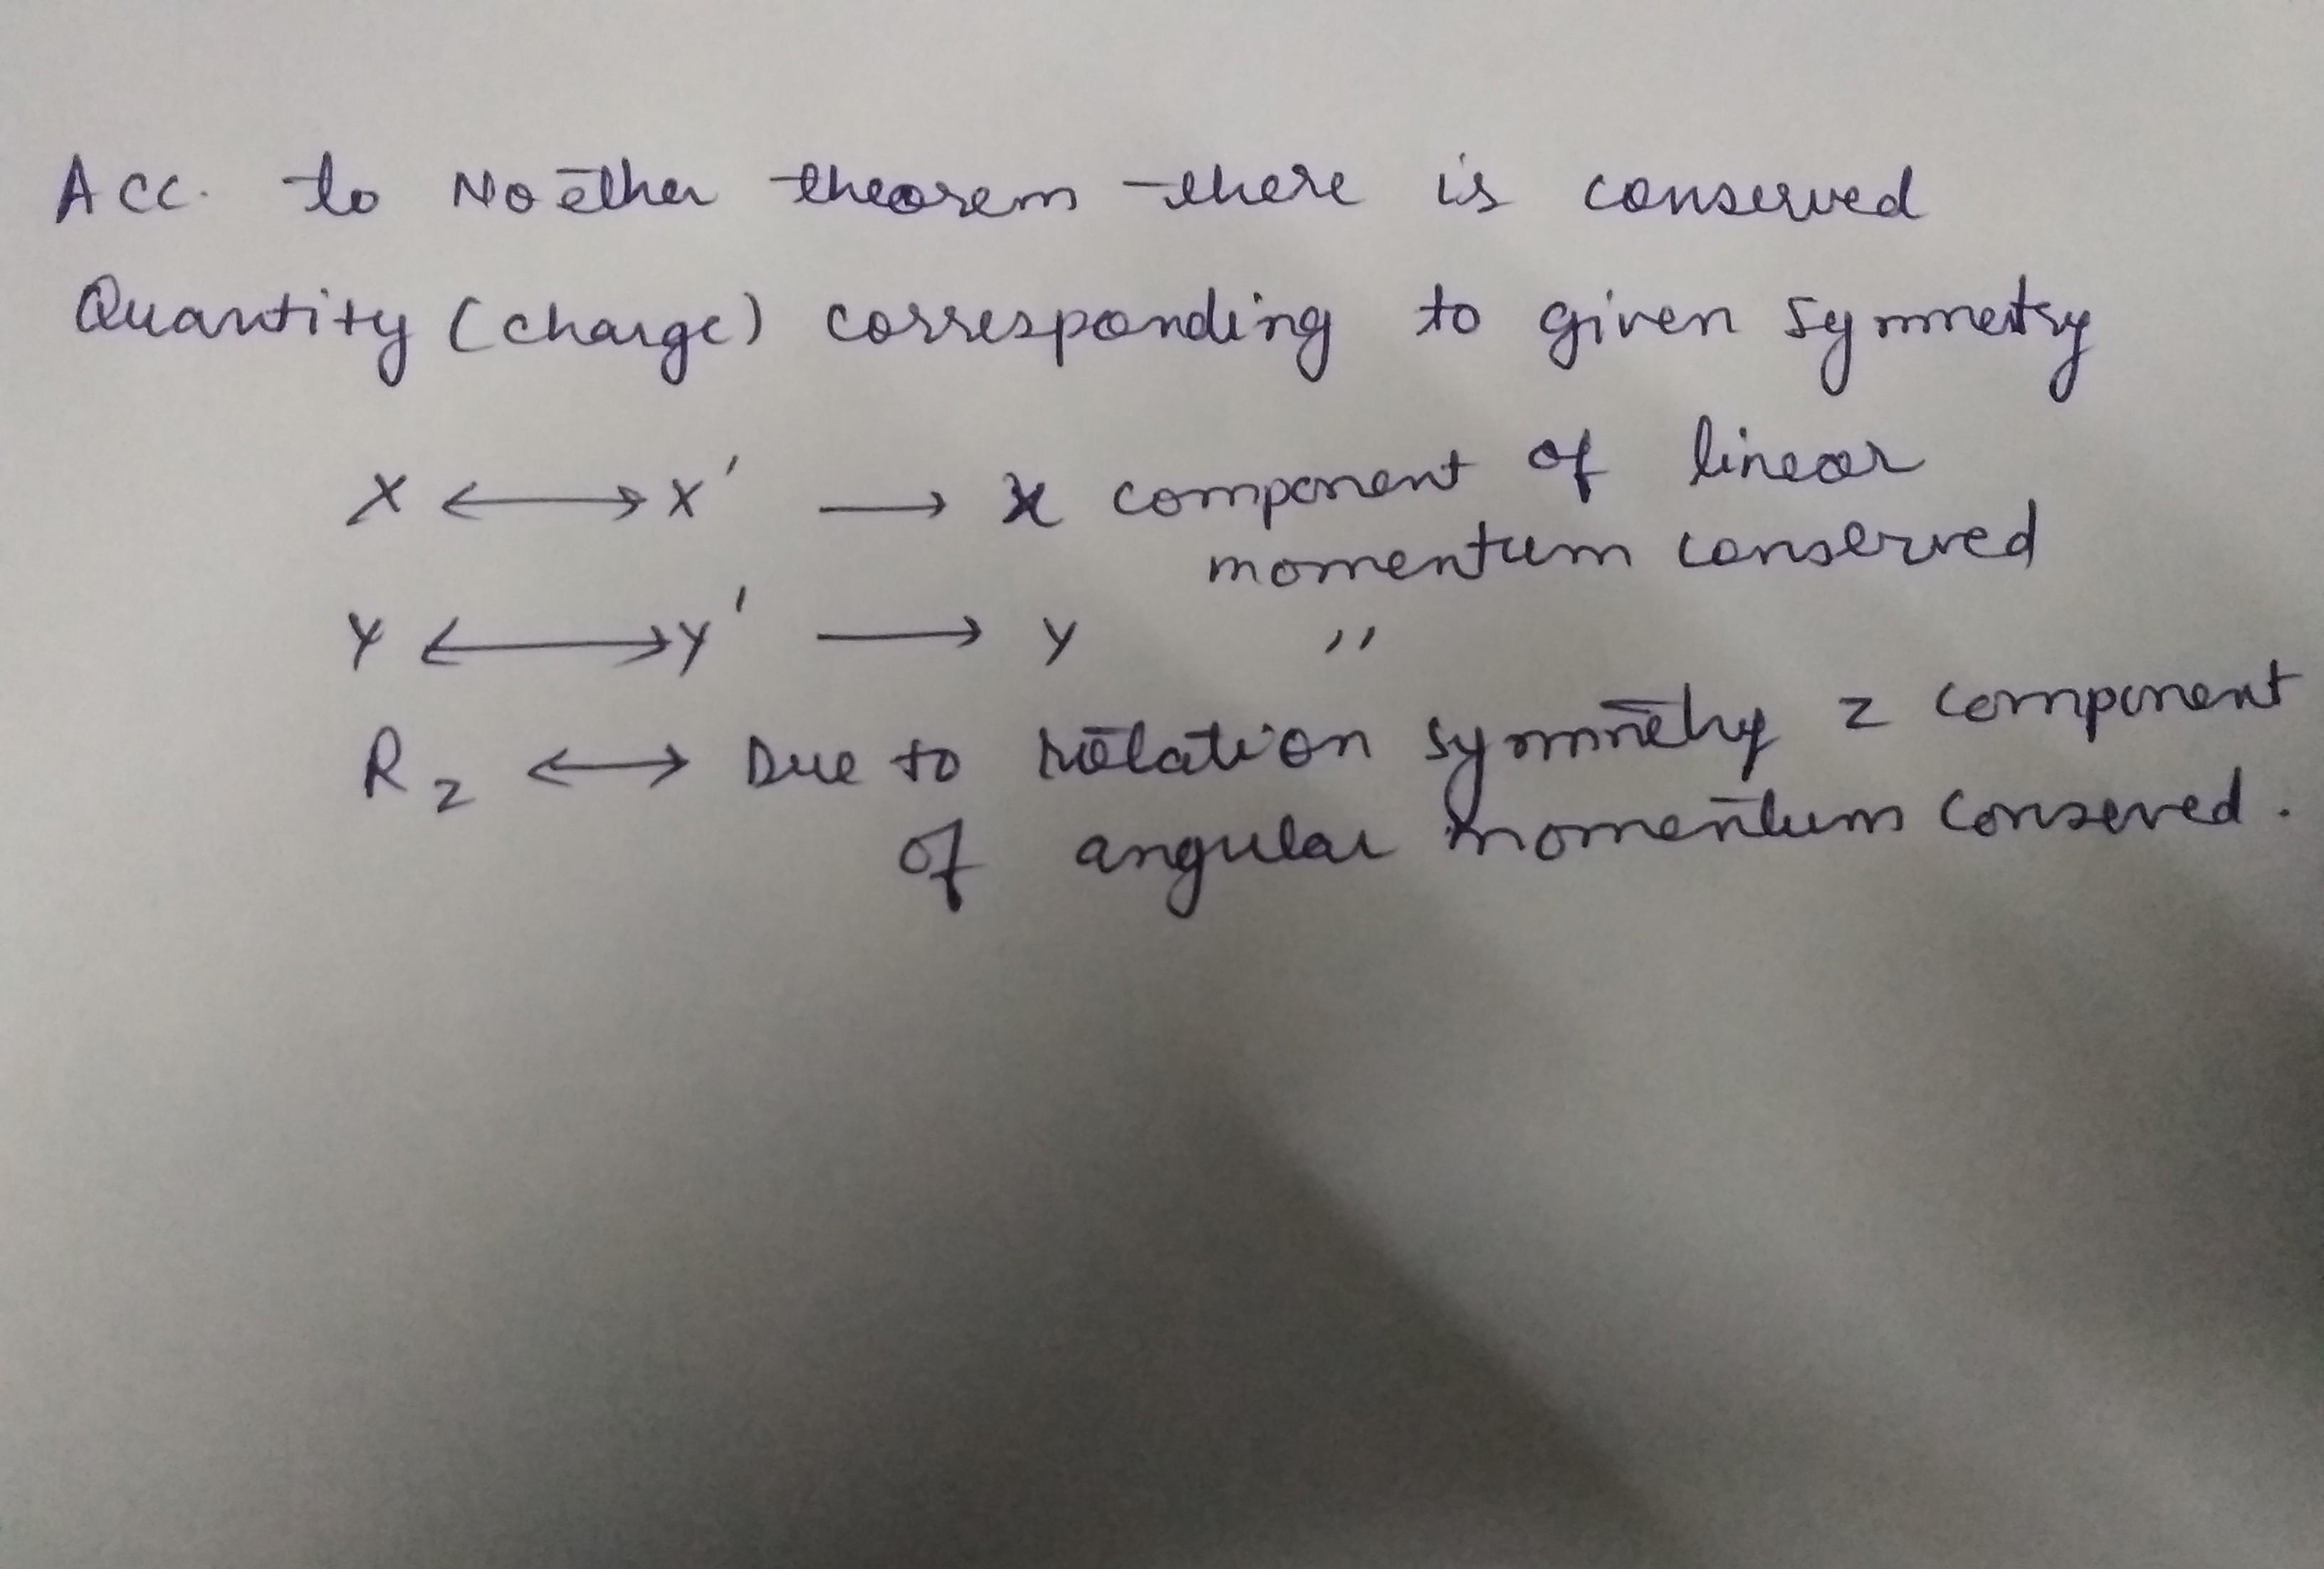 Acc. to Noether theorem there is conserved
Quantity (charge) corresponding to given symmetry
X ⟷ X' ⟶ x component of linear
momentum conserved
Y ⟷ Y' ⟶ Y "
R_z ⟷ Due to rotation symmetry z component
of angular momentum conserved.